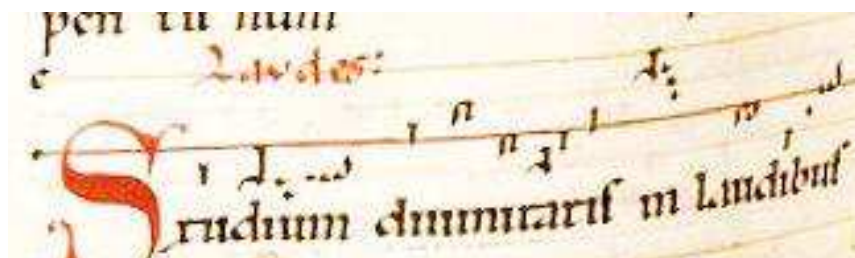 pen tu num
c Laudes:
Studium diuinitatis in laudibus